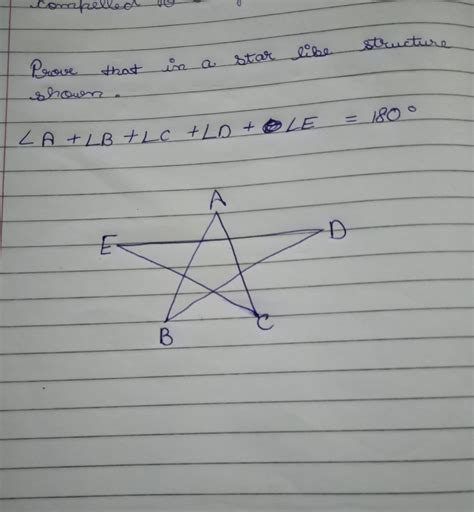 compelled to
Prove that in a star like structure
shown.
∠A + ∠B + ∠C + ∠D + ∠E = 180°
A
E D
B C